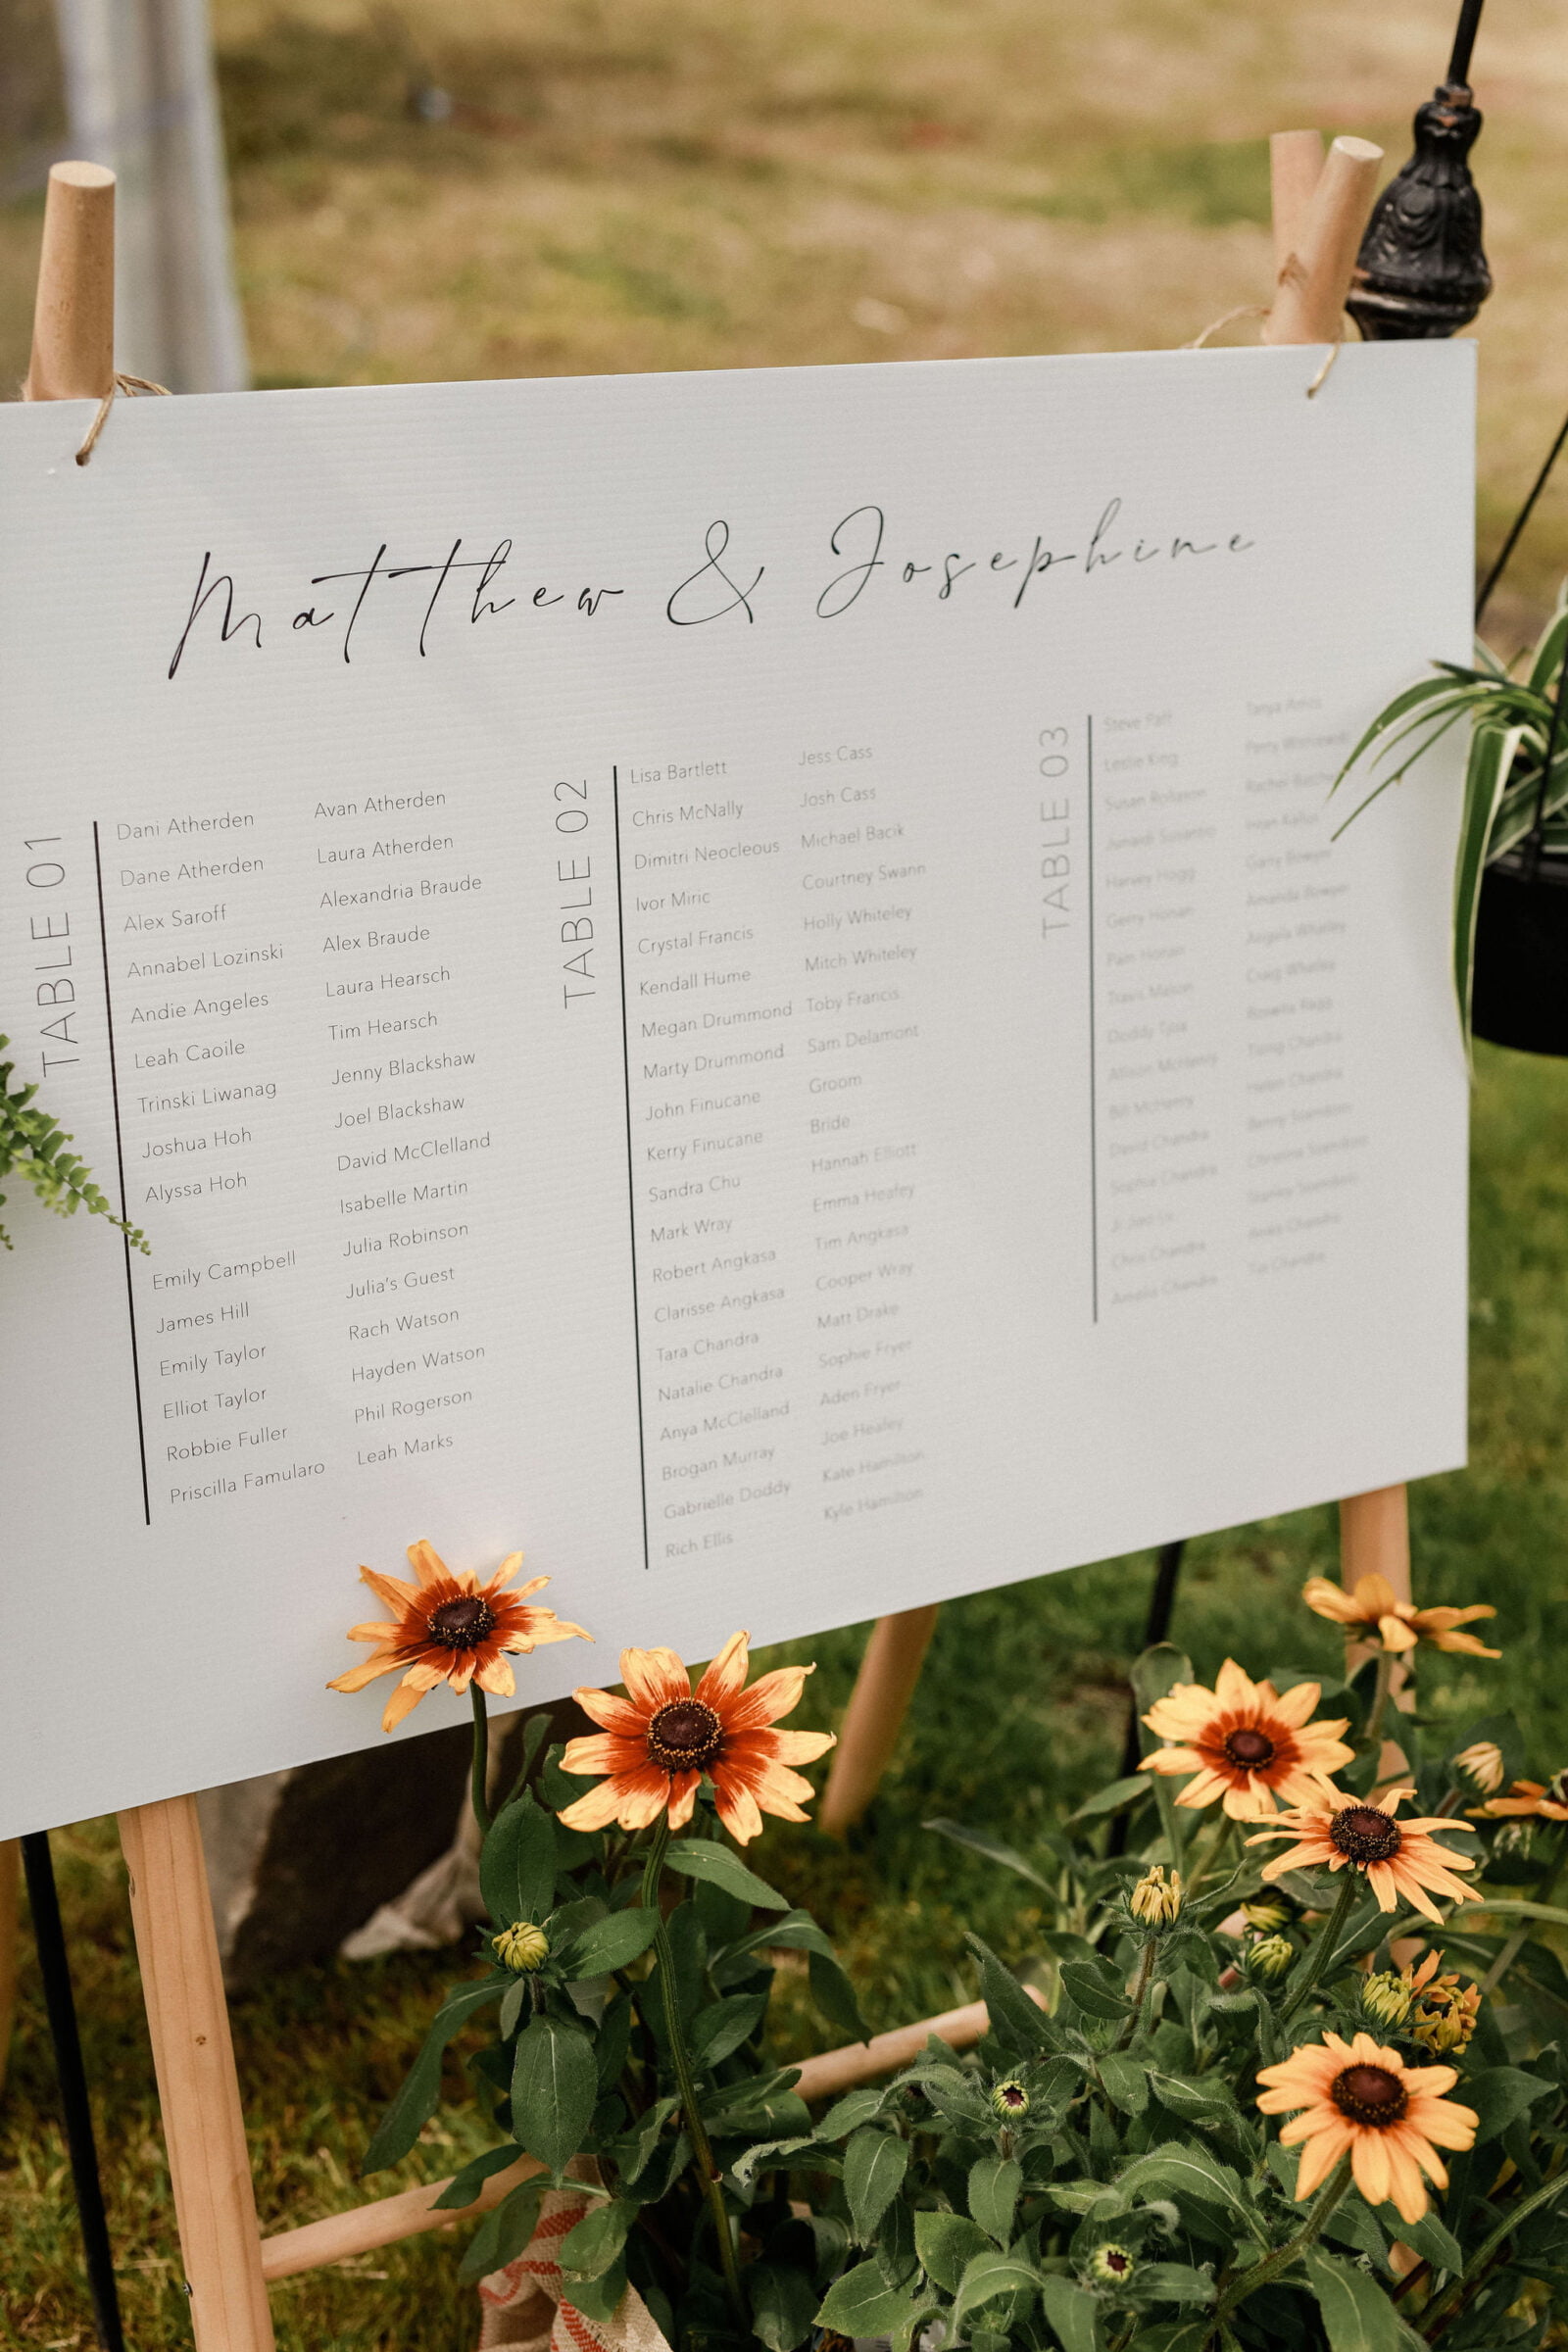 Matthew & Josephine
TABLE 01
Dani Atherden
Dane Atherden
Alex Saroff
Annabel Lozinski
Andie Angeles
Leah Caoile
Trinski Liwanag
Joshua Hoh
Alyssa Hoh
Emily Campbell
James Hill
Emily Taylor
Elliot Taylor
Robbie Fuller
Priscilla Famularo
Avan Atherden
Laura Atherden
Alexandria Braude
Alex Braude
Laura Hearsch
Tim Hearsch
Jenny Blackshaw
Joel Blackshaw
David McClelland
Isabelle Martin
Julia Robinson
Julia's Guest
Rach Watson
Hayden Watson
Phil Rogerson
Leah Marks
TABLE 02
Lisa Bartlett
Chris McNally
Dimitri Neocleous
Ivor Miric
Crystal Francis
Kendall Hume
Megan Drummond
Marty Drummond
John Finucane
Kerry Finucane
Sandra Chu
Mark Wray
Robert Angkasa
Clarisse Angkasa
Tara Chandra
Natalie Chandra
Anya McClelland
Brogan Murray
Gabrielle Doddy
Rich Ellis
Jess Cass
Josh Cass
Michael Bacik
Courtney Swann
Holly Whiteley
Mitch Whiteley
Toby Francis
Sam Delamont
Groom
Bride
Hannah Elliott
Emma Healey
Tim Angkasa
Cooper Wray
Matt Drake
Sophie Fryer
Aden Fryer
Joe Healey
Kate Hamilton
Kyle Hamilton
TABLE 03
Steve
Leslie King
Susan
Harvey Hogg
Gerry Honan
Pam Honan
Travis
Allison McHenry
Bill McHenry
David Chandra
Sophia Chandra
Chris Chandra
Amelia Chandra
Tanya
Perry
Rachel
Garry Bowyer
Amanda Bowyer
Angela Whatley
Craig Whatley
Chandra
Helen Chandra
Chandra
Chandra